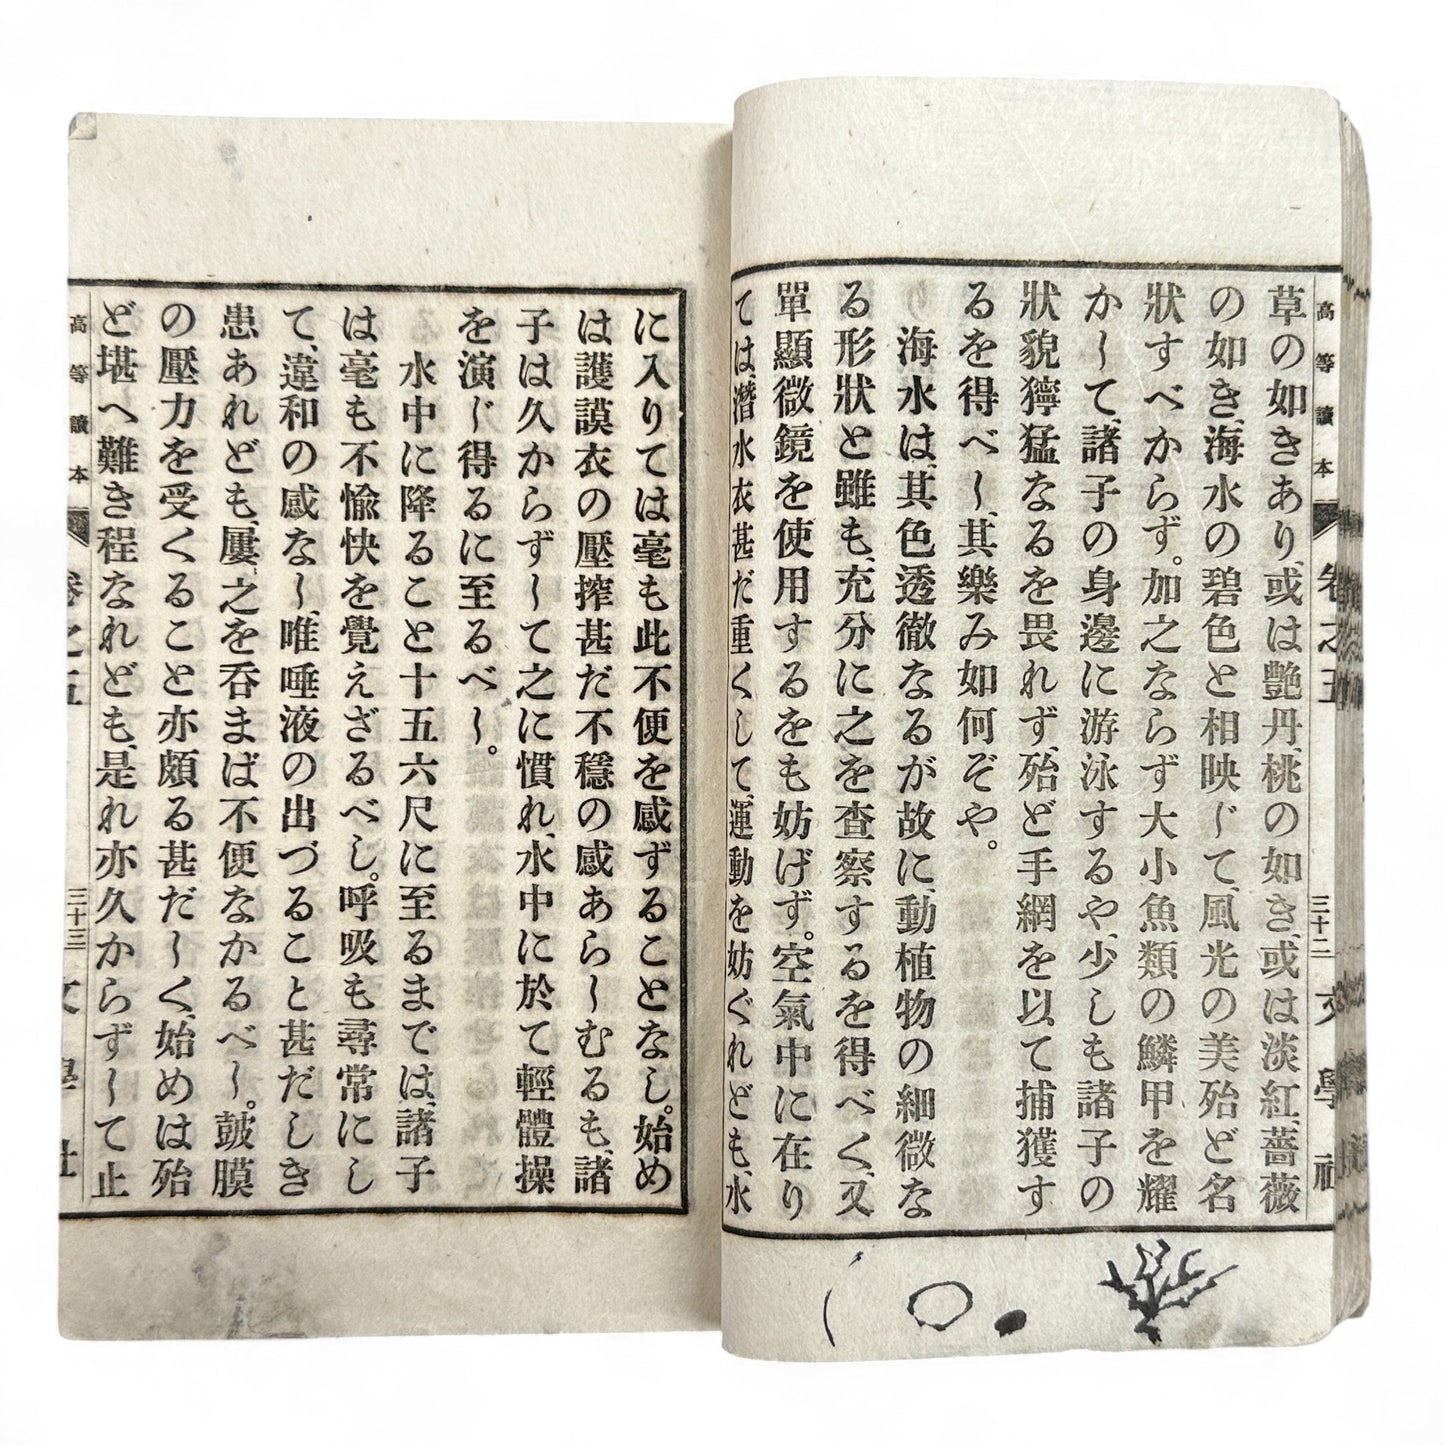 草の如きあり、或は艷丹、桃の如き、或は淡紅、薔薇
の如き、海水の碧色と相映じて、風光の美殆ど名
狀すべからず。加之ならず大小魚類の鱗甲を耀
かして、諸子の身邊に游泳するや、少しも諸子の
狀貌獰猛なるを畏れず、殆ど手網を以て捕獲す
るを得べし、其樂み如何ぞや。
海水は、其色透徹なるが故に、動植物の細微な
る形狀と雖も、充分に之を査察するを得べく、又
單顯微鏡を使用するをも妨げず。空氣中に在り
ては、潛水衣甚だ重くして、運動を妨ぐれども、水
高等讀本 卷之五 三十二 文學社
に入りては毫も此不便を感ずることなし。始め
は護謨衣の壓搾甚だ不穩の感あらしむるも、諸
子は久からずして之に慣れ、水中に於て輕體操
を演じ得るに至るべし。
水中に降ること十五六尺に至るまでは、諸子
は毫も不愉快を覺えざるべし。呼吸も尋常にし
て、違和の感なし、唯唾液の出づること甚だしき
患あれども、屢之を呑まば不便なかるべし。皷膜
の壓力を受くること亦頗る甚だしく、始めは殆
ど堪へ難き程なれども、是れ亦久からずして止
高等讀本 卷之五 三十三 文學社